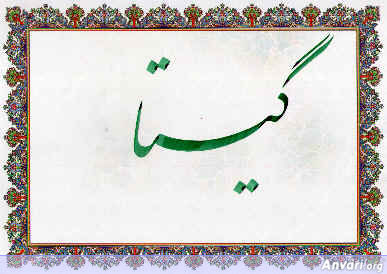 گیتا
Anvari.org